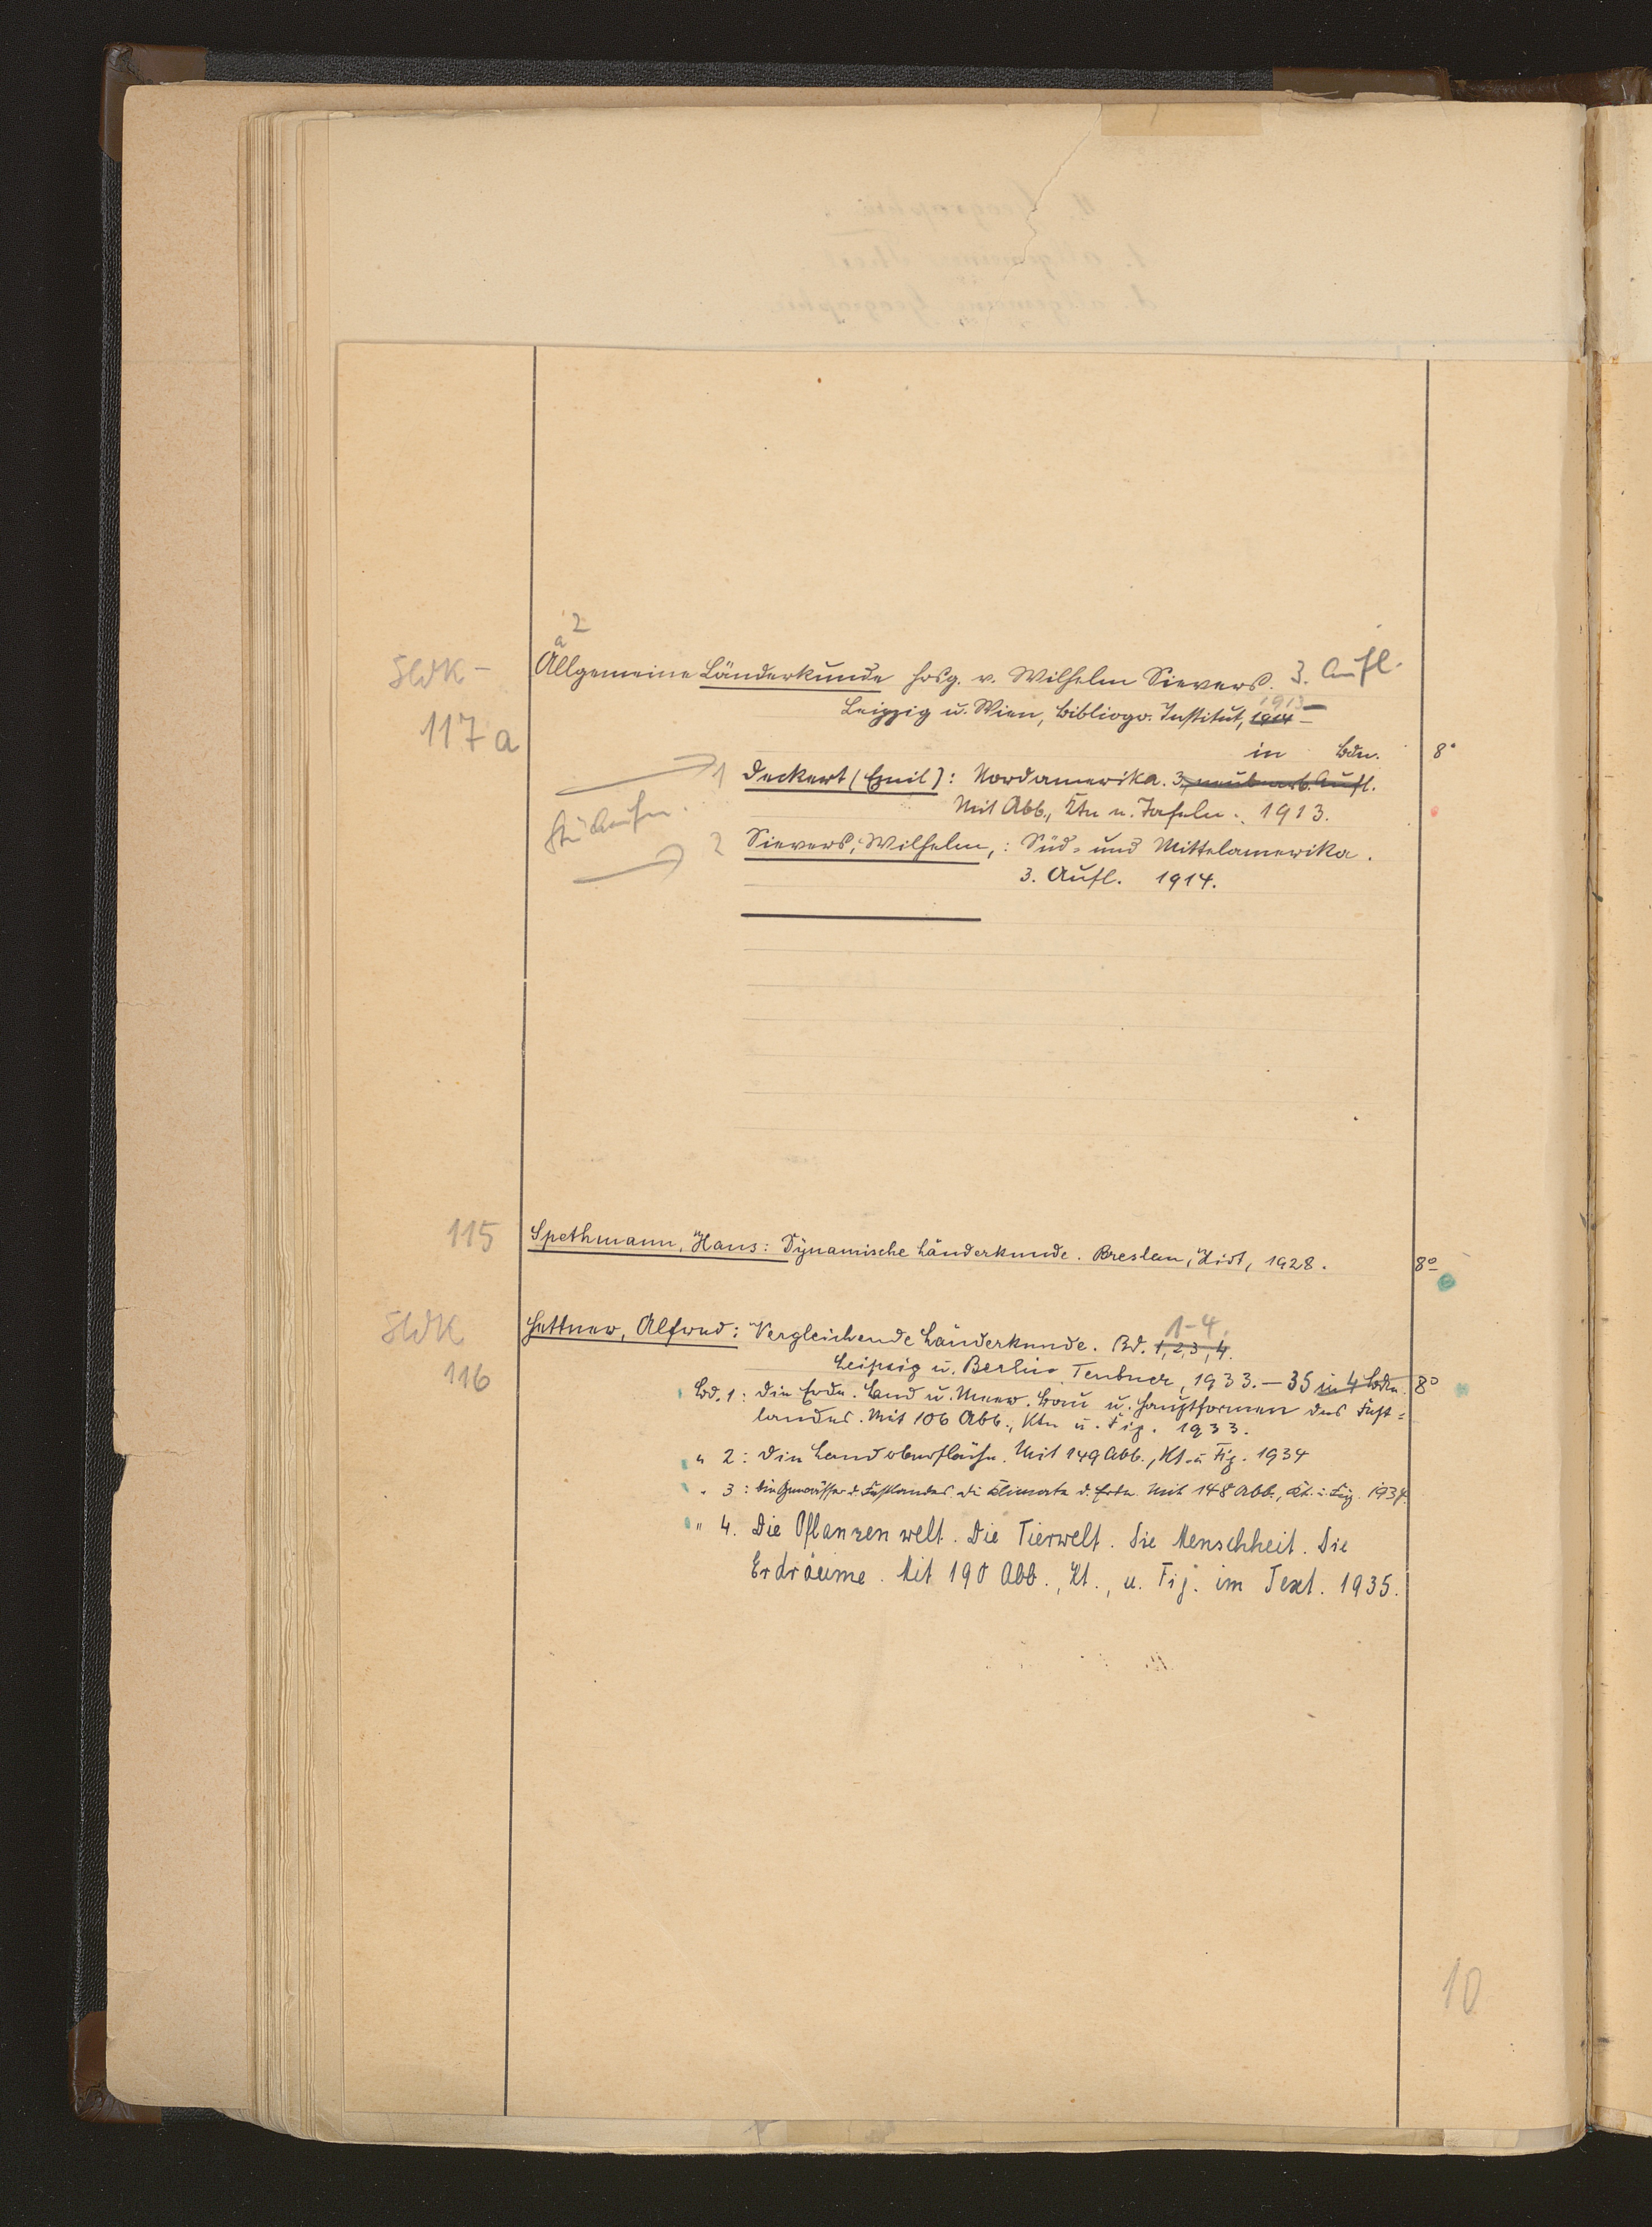 2
a
SWK -
Allgemeine Länderkunde hrsg. v. Wilhelm Sievers. 3. Aufl.
1913-
Leipzig u. Wien, Bibliogr. Institut, 1914 -
117 a
in Bdn. 8°
1 Deckert (Emil): Nordamerika. 3., neubearb. Aufl.
Mit Abb., Ktn u. Tafeln. 1913.
2 Sievers, Wilhelm,: Süd- und Mittelamerika.
3. Aufl. 1914.
115 Spethmann, Hans: Dynamische Länderkunde. Breslau, Hirt, 1928. 8°
SWK
1-4.
Hettner, Alfred: Vergleichende Länderkunde. Bd. 1, 2, 3, 4.
116
Leipzig u. Berlin, Teubner, 1933. - 35 in 4 Bdn. 8°
Bd. 1: Die Erde. Land u. Meer. Bau u. Hauptformen des Fest=
landes. Mit 106 Abb., Ktn u. Fig. 1933.
" 2: Die Landoberfläche. Mit 149 Abb., Kt. u. Fig. 1934
" 3: Die Gewässer d. Festlandes. Die Klimate d. Erde. Mit 148 Abb., Kt. u. Fig. 1934.
" 4. Die Pflanzenwelt. Die Tierwelt. Die Menschheit. Die
Erdräume. Mit 190 Abb., Kt., u. Fig. im Text. 1935.
10